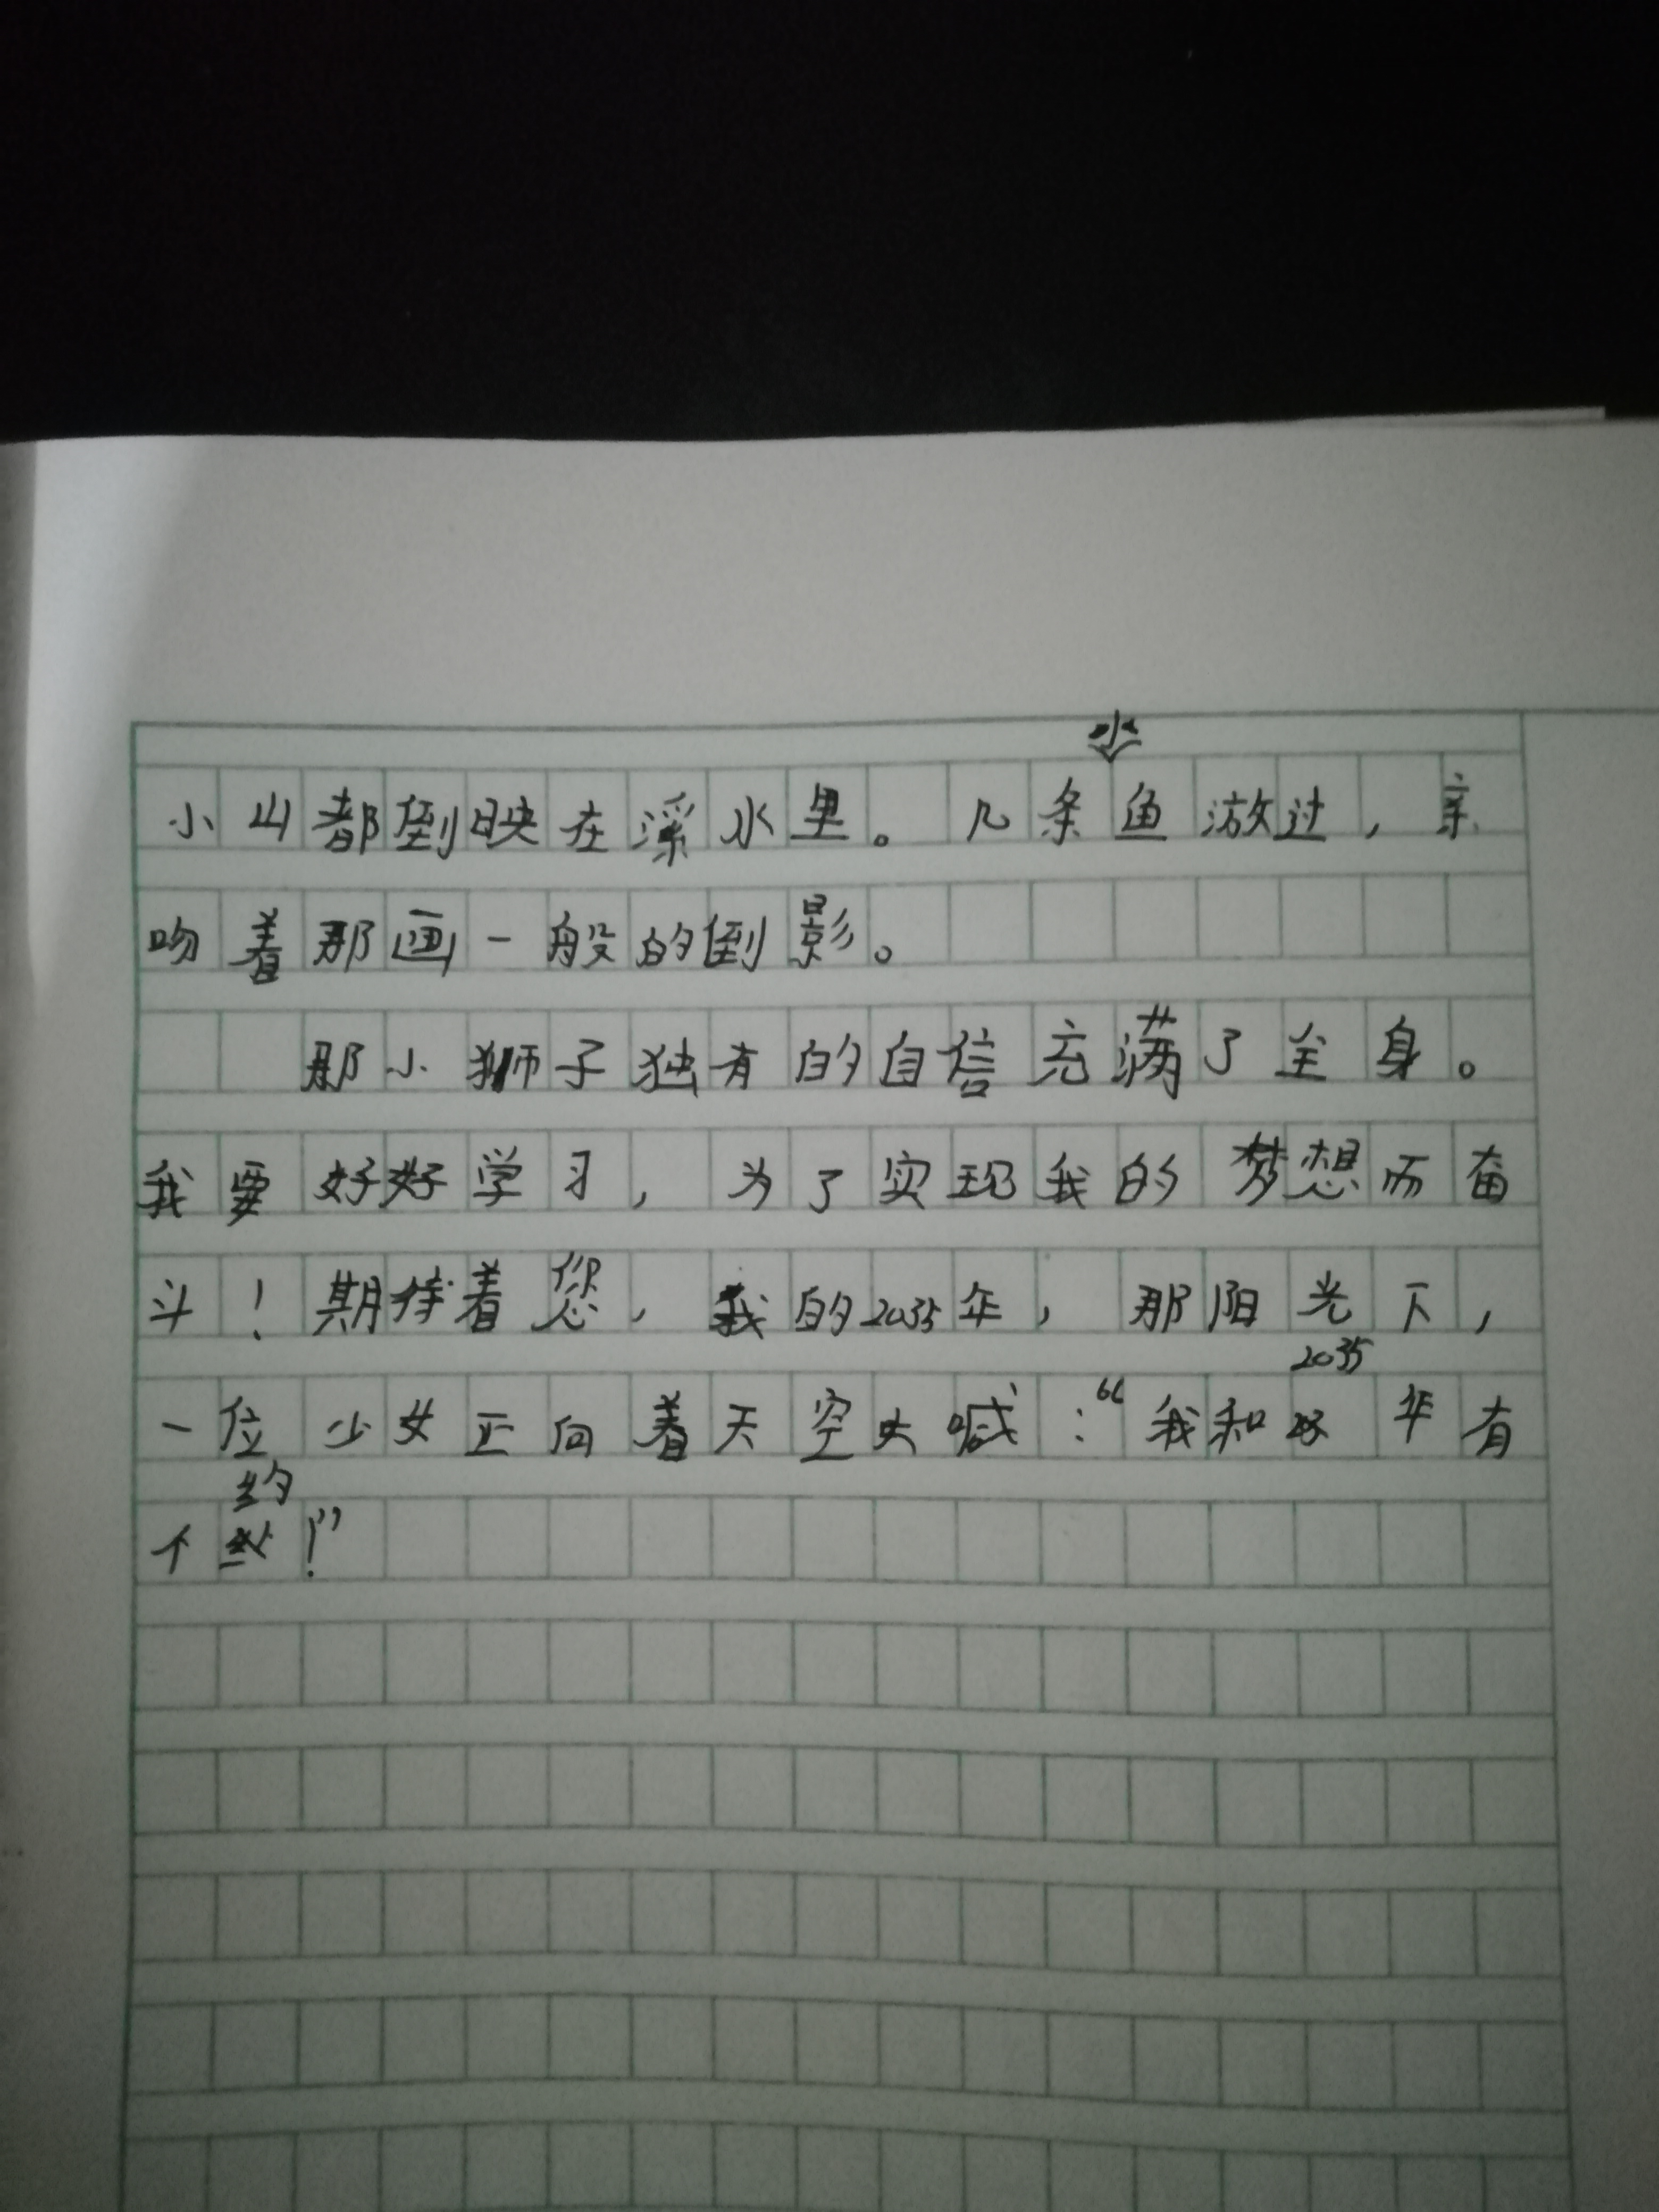 小山都倒映在溪水里。几条鱼游过，亲
吻着那画一般的倒影。
那小狮子独有的自信充满了全身。
我要好好学习，为了实现我的梦想而奋
斗！期待着您，我的2035年，那阳光下，
2035
一位少女正向着天空大喊：“我和 年有
约
个 ！”